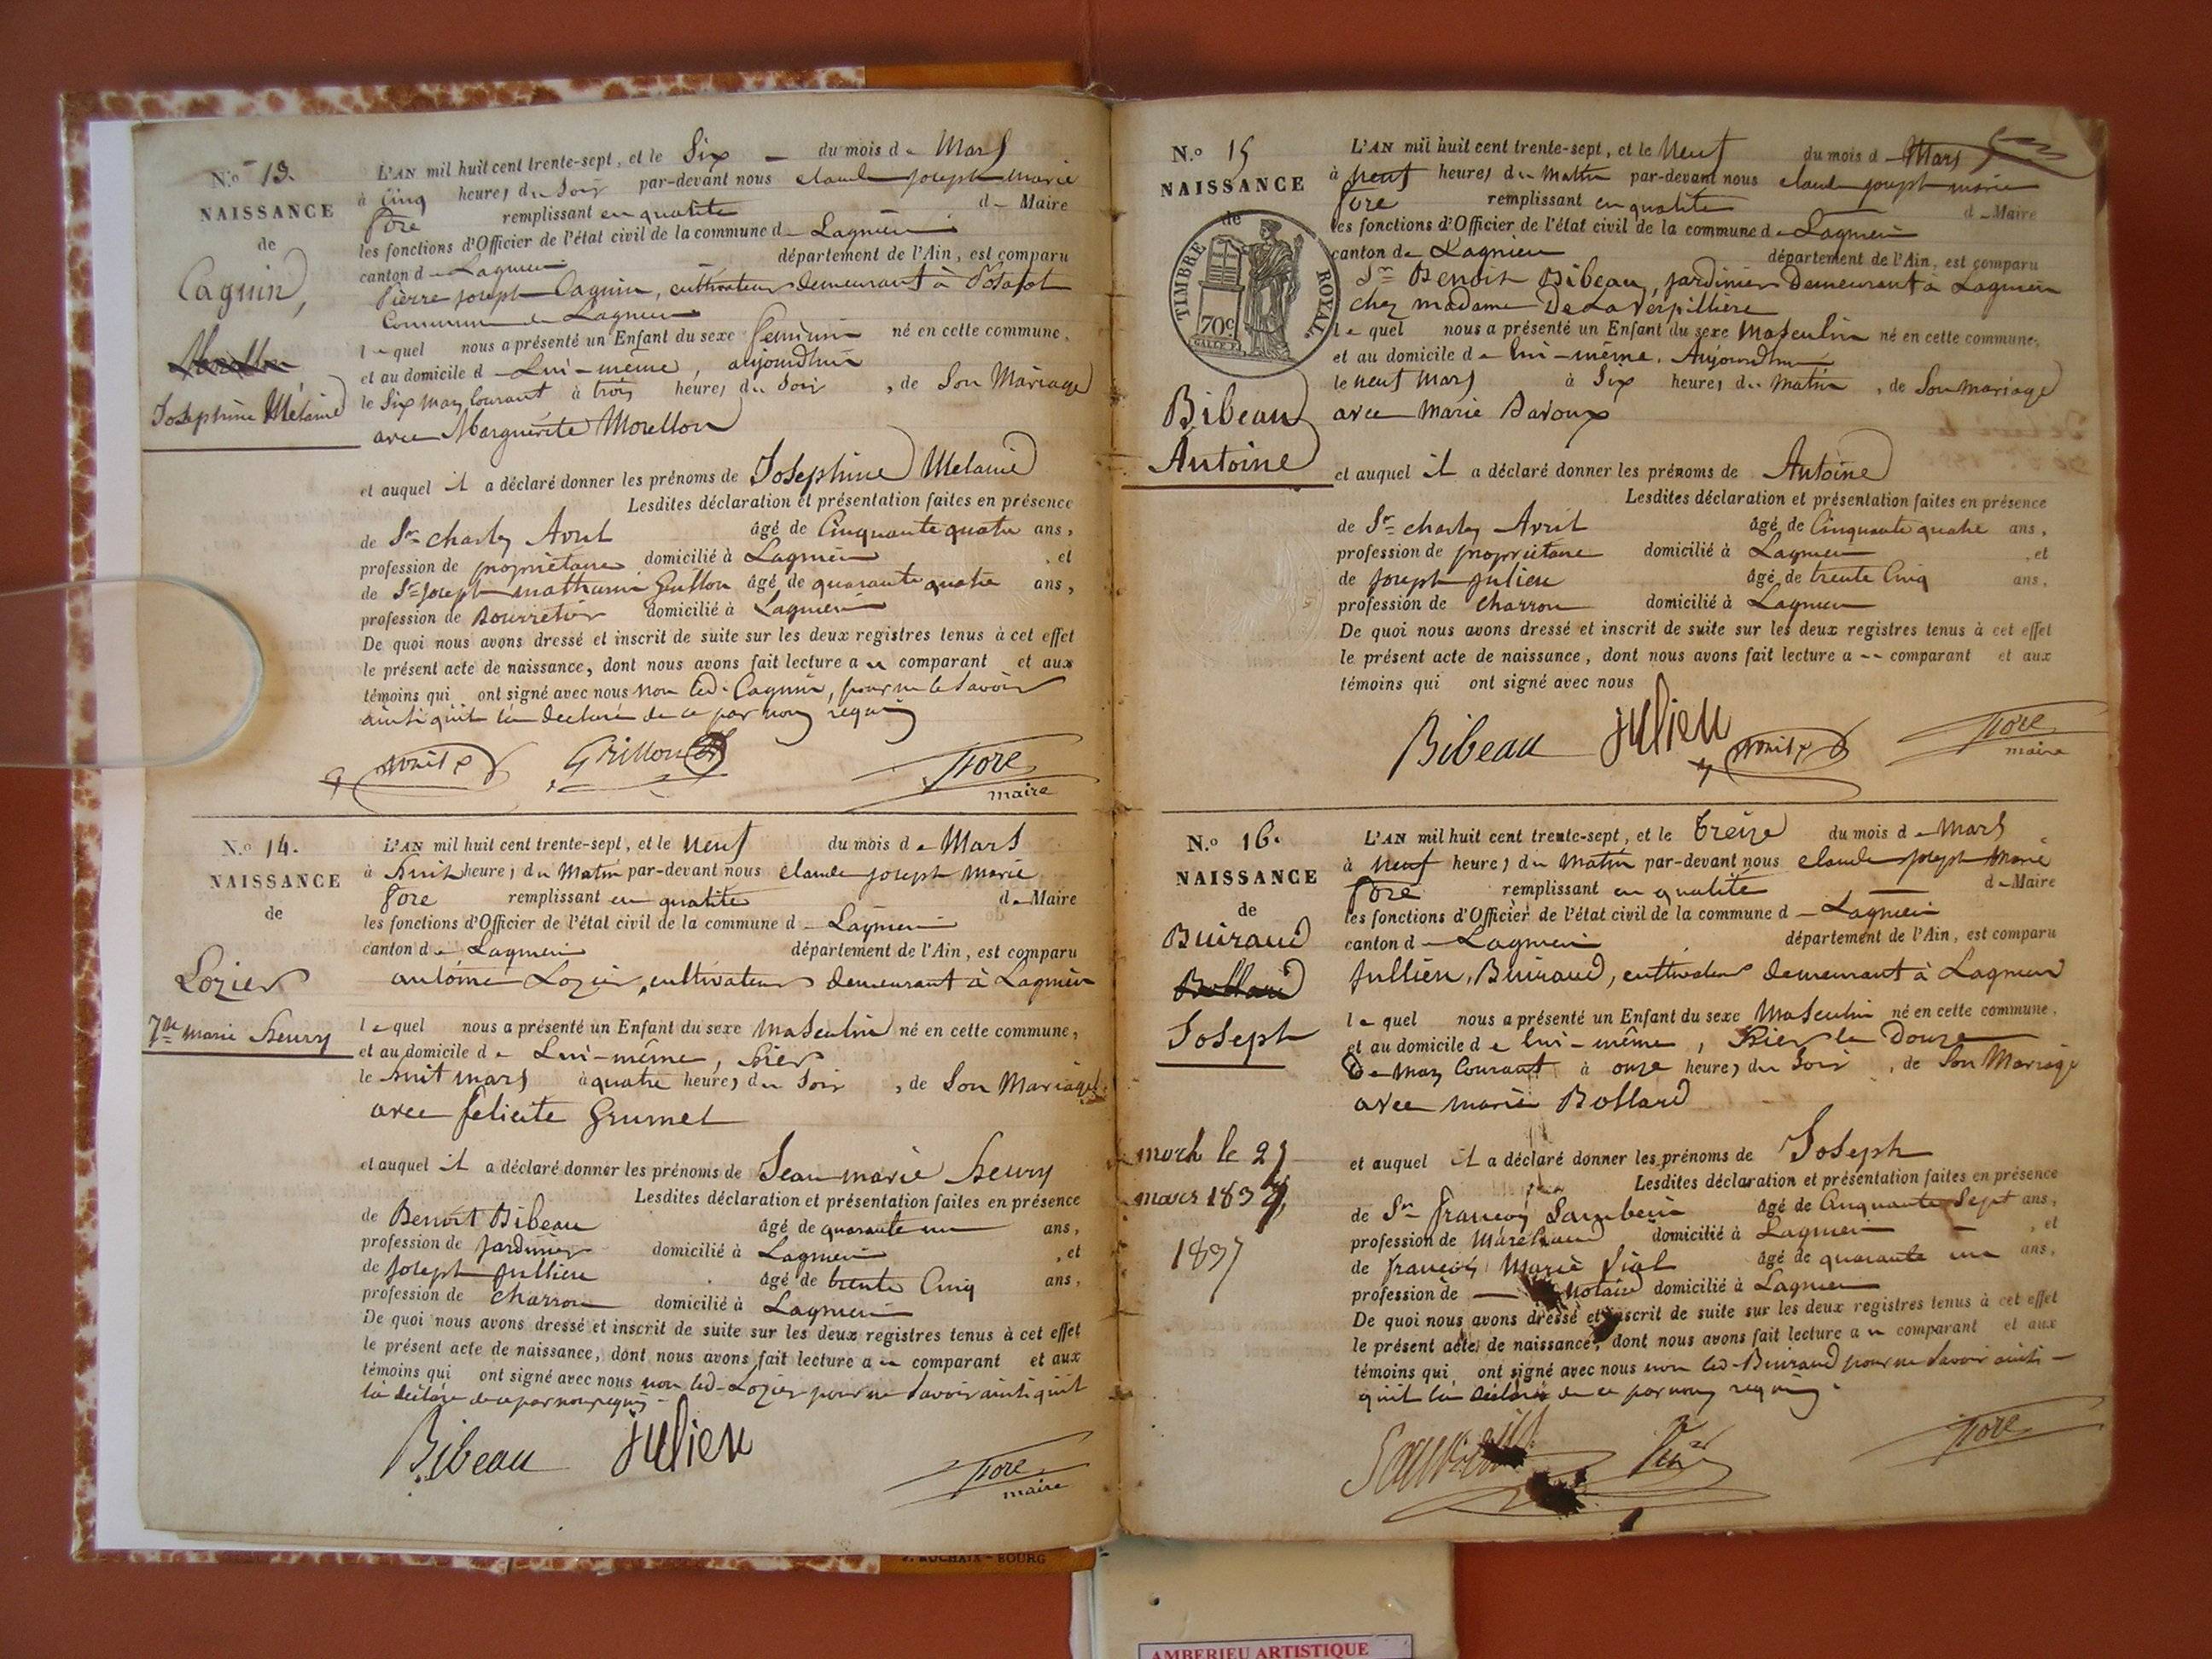 N.o 13.
NAISSANCE
de
Caguin,
Josephine Mélanie
L'AN mil huit cent trente-sept, et le Six du mois de Mars
à Cinq heures du Soir par-devant nous claude joseph marie
fore remplissant en qualité de Maire
les fonctions d'Officier de l'état civil de la commune de Lagnieu
canton de Lagnieu département de l'Ain, est comparu
Pierre joseph Caguin, cultivateur demeurant à
Commune de Lagnieu
le quel nous a présenté un Enfant du sexe feminin né en cette commune,
et au domicile de Lui-même, aujourdhui
le Six mars Courant à trois heures du Soir, de Son Mariage
avec Marguerite Morellon
et auquel il a déclaré donner les prénoms de Josephine Melanie
Lesdites déclaration et présentation faites en présence
de Sr charles Avril âgé de Cinquante quatre ans,
profession de propriétaire domicilié à Lagnieu, et
de Sr joseph mathurin Grillon âgé de quarante quatre ans,
profession de Bourrelier domicilié à Lagnieu
De quoi nous avons dressé et inscrit de suite sur les deux registres tenus à cet effet
le présent acte de naissance, dont nous avons fait lecture au comparant et aux
témoins qui ont signé avec nous non led. Caguin, pour ne le Savoir
ainsi qu'il l'a declaré de ce par nous requis
Avril Grillon fore
maire
N.o 14.
NAISSANCE
de
Lozier
Jn marie henry
L'AN mil huit cent trente-sept, et le neuf du mois de Mars
à huit heures du Matin par-devant nous claude joseph marie
fore remplissant en qualité de Maire
les fonctions d'Officier de l'état civil de la commune de Lagnieu
canton de Lagnieu département de l'Ain, est comparu
antoine Lozier, cultivateur demeurant à Lagnieu
le quel nous a présenté un Enfant du sexe Masculin né en cette commune,
et au domicile de Lui-même, hier
le huit mars à quatre heures du Soir, de Son Mariage
avec felicite Grumel
et auquel il a déclaré donner les prénoms de Jean marie henry
Lesdites déclaration et présentation faites en présence
de Benoit Bibeau âgé de quarante un ans,
profession de jardinier domicilié à Lagnieu, et
de joseph jullien âgé de trente Cinq ans,
profession de charron domicilié à Lagnieu
De quoi nous avons dressé et inscrit de suite sur les deux registres tenus à cet effet
le présent acte de naissance, dont nous avons fait lecture au comparant et aux
témoins qui ont signé avec nous non led. Lozier pour ne Savoir ainsi qu'il
l'a déclaré de ce par nous requis
Bibeau julien fore
maire
N.o 15
NAISSANCE
de
TIMBRE ROYAL
70c
Bibeau
Antoine
L'AN mil huit cent trente-sept, et le Neuf du mois de Mars
à neuf heures du Matin par-devant nous claude joseph marie
fore remplissant en qualité de Maire
les fonctions d'Officier de l'état civil de la commune de Lagnieu
canton de Lagnieu département de l'Ain, est comparu
Sr Benoit Bibeau, jardinier Demeurant à Lagnieu
chez madame De La Verpilliere
le quel nous a présenté un Enfant du sexe Masculin né en cette commune,
et au domicile de lui-même, Aujourdhui
le neuf mars à Six heures du Matin, de Son mariage
avec marie Davoux
et auquel il a déclaré donner les prénoms de Antoine
Lesdites déclaration et présentation faites en présence
de Sr charles Avril âgé de Cinquante quatre ans,
profession de propriétaire domicilié à Lagnieu, et
de joseph julien âgé de trente Cinq ans,
profession de charron domicilié à Lagnieu
De quoi nous avons dressé et inscrit de suite sur les deux registres tenus à cet effet
le présent acte de naissance, dont nous avons fait lecture au comparant et aux
témoins qui ont signé avec nous
Bibeau julien Avril fore
maire
N.o 16.
NAISSANCE
de
Buiraud
Bollard
Joseph
mort le 27
mars 1837
1837
L'AN mil huit cent trente-sept, et le treize du mois de Mars
à neuf heures du Matin par-devant nous claude joseph Marie
fore remplissant en qualité de Maire
les fonctions d'Officier de l'état civil de la commune de Lagnieu
canton de Lagnieu département de l'Ain, est comparu
Jullien, Buiraud, cultivateur demeurant à Lagnieu
le quel nous a présenté un Enfant du sexe Masculin né en cette commune,
et au domicile de lui-même, hier le Douze
De mars Courant à onze heures du Soir, de Son Mariage
avec marie Bollard
et auquel il a déclaré donner les prénoms de Joseph
Lesdites déclaration et présentation faites en présence
de Sr francois âgé de Cinquante Sept ans,
profession de Maréchand domicilié à Lagnieu, et
de francois Marie Vial âgé de quarante un ans,
profession de Notaire domicilié à Lagnieu
De quoi nous avons dressé et inscrit de suite sur les deux registres tenus à cet effet
le présent acte de naissance, dont nous avons fait lecture au comparant et aux
témoins qui ont signé avec nous non led. Buiraud pour ne Savoir ainsi
qu'il l'a déclaré de ce par nous requis.
fore
J. RUCHAIX - BOURG
AMBERIEU ARTISTIQUE